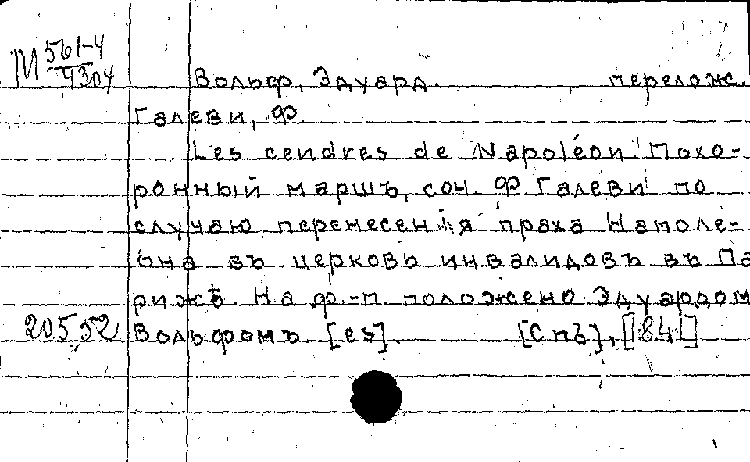 М 561-4
4304
Вольф, Эдуард. перелож.
Галеви, Ф.
Les cendres de Napoléon. Похо-
ронный маршъ, соч. Ф. Галеви по
случаю перенесенія праха Наполе-
она въ церковь инвалидовъ въ Па
рижѣ. На ф.-п. положено Эдуардом
20552 Вольфомъ [es]. [Спб], [184]